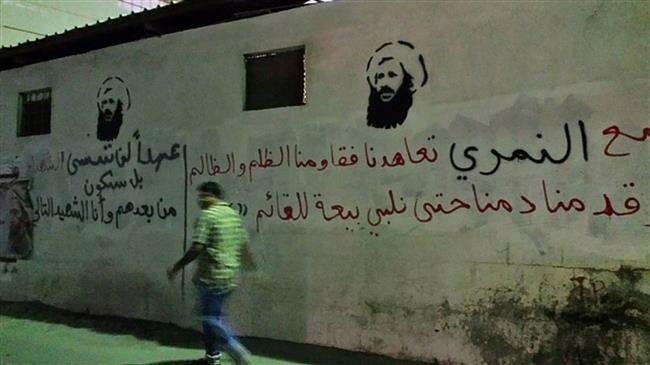 مع النمري تعاهدنا فقاومنا الظلم والظالم
وقدمنا دمنا حتى نلبي بيعة للقائم
عهداً لن ننسى الشهداء
بل سنكون
من بعدهم وأنا الشهيد التالي